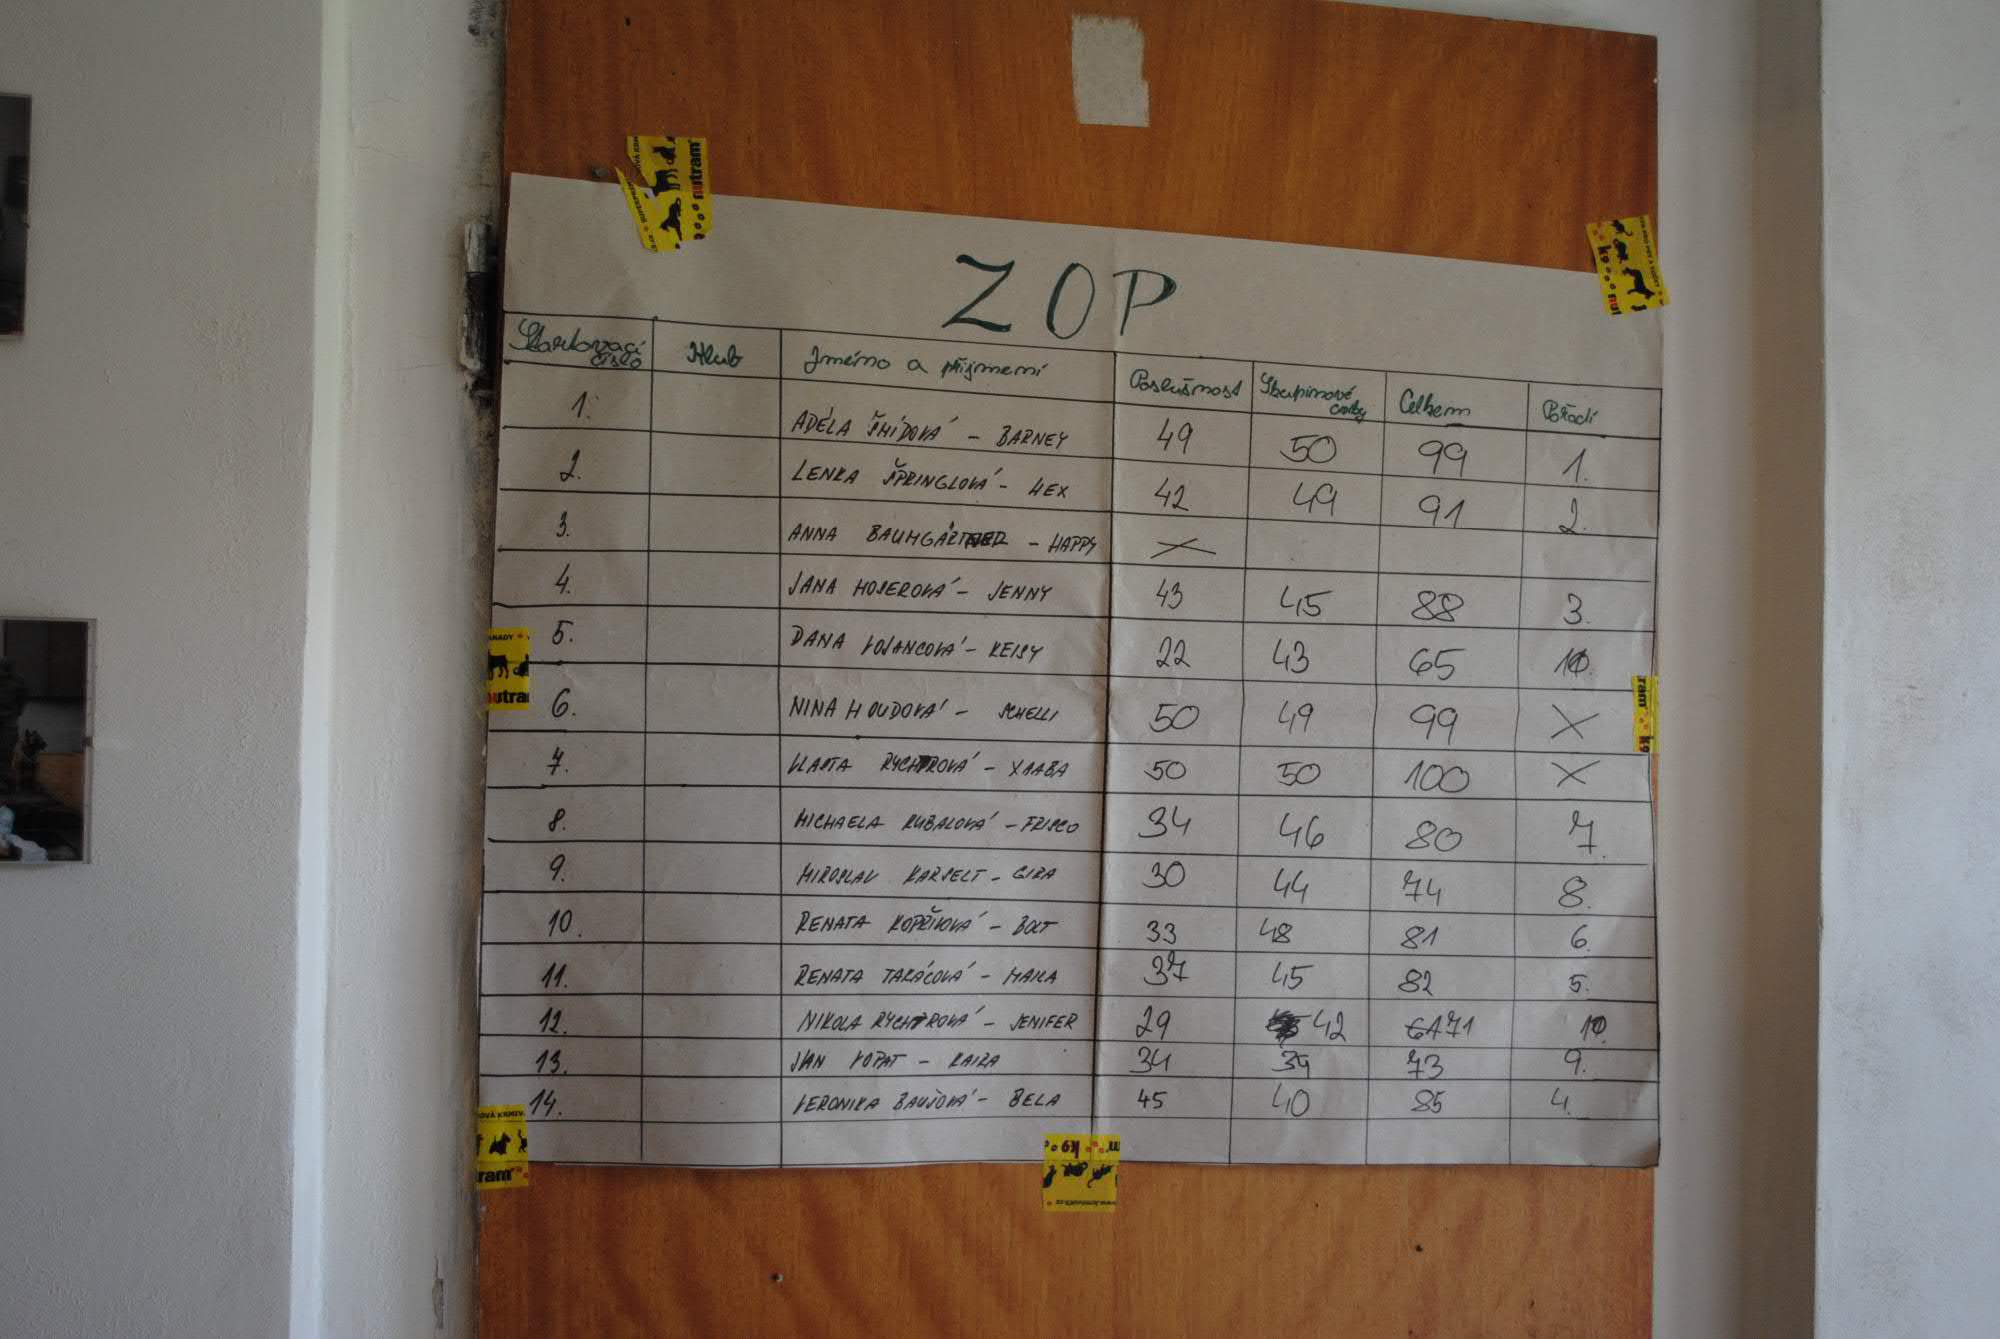 nutram
k9
ZOP
Startovací číslo Klub Jméno a příjmení Poslušnost Skupinové cviky Celkem Pořadí
1. ADÉLA ŠMÍDOVÁ - BARNEY 49 50 99 1.
2. LENKA ŠPRINGLOVÁ - HEX 42 49 91 2.
3. ANNA - HAPPY X
4. JANA HOSEROVÁ - JENNY 43 45 88 3.
5. DANA - KEISY 22 43 65
6. NINA HOUDOVÁ - SCHELLI 50 49 99 X
7. VLASTA 50 50 100 X
8. MICHAELA KUBALOVÁ - FRISCO 34 46 80 7.
9. MIROSLAV KARSELT - GIRA 30 44 74 8.
10. RENATA KOPŘIVOVÁ - BOLT 33 48 81 6.
11. RENATA TAKÁCOVÁ - MAIKA 37 45 82 5.
12. NIKOLA - JENIFER 29 42 71
13. JAN KOPAT - KAIRA 34 39 73 9.
14. VERONIKA BAUŠOVÁ - BELA 45 40 85 4.
nutram
ram
k9